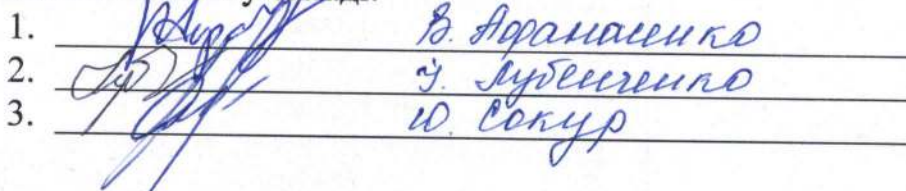 1. В. Афанасенко
2. У. Лубенченко
3. Ю. Сокур